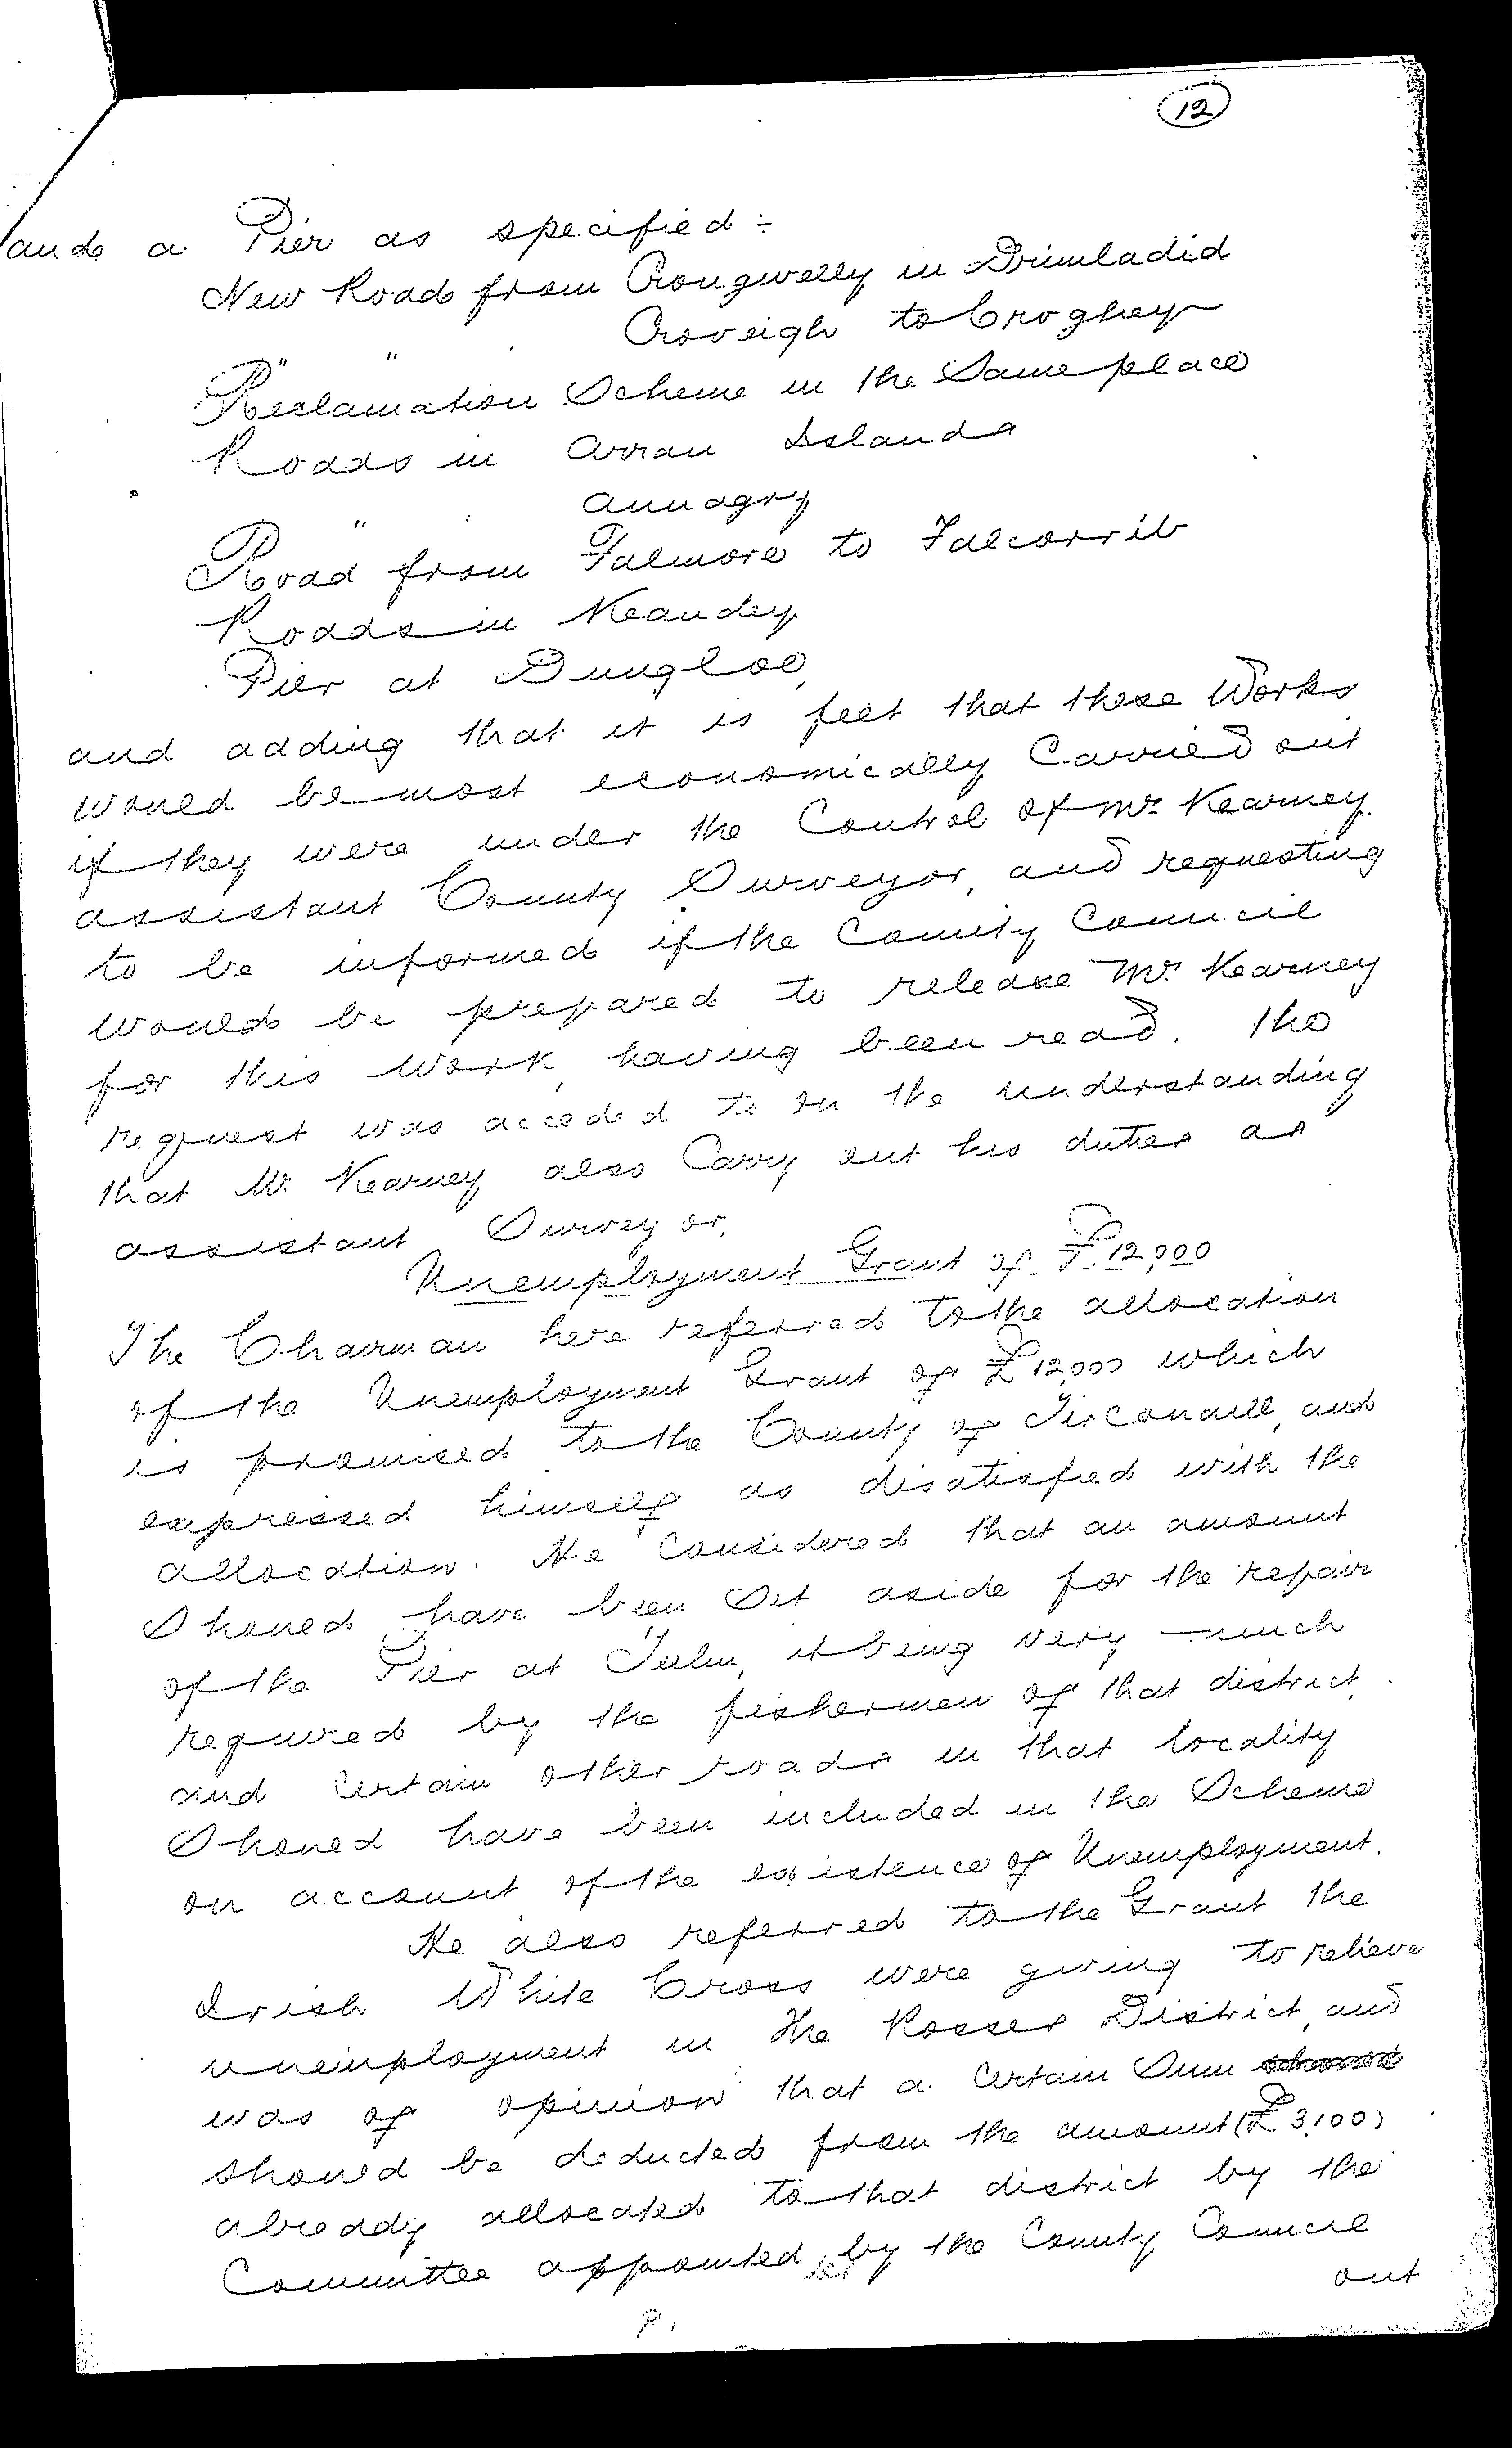 12
and a Pier as specified ÷
New Road from Crougwelly in Drimladid
" " Croveigh to Croghey
Reclamation Scheme in the Same place
Roads in Arran Islands
" Annagry
Road from Falmore to Falcorrib
Roads in Keaudey
Pier at Dungloe,
and adding that it is felt that these Works
would be most economically Carried out
if they were under the Control of Mr. Kearney.
assistant County Surveyor, and requesting
to be informed if the County Council
would be prepared to release Mr. Kearney
for this Work, having been read. The
request was acceded to on the understanding
that Mr. Kearney also Carry out his duties as
assistant Surveyor.
Unemployment Grant of £12,000
The Chairman here referred to the allocation
of the Unemployment Grant of £12,000 which
is promised to the County of Tirconaill, and
expressed himself as disatisfied with the
allocation. He Considered that an amount
Should have been Set aside for the repair
of the Pier at Teelin, it being very much
required by the fishermen of that district.
and Certain other roads in that locality
Should have been included in the Scheme
on account of the existence of Unemployment.
He also referred to the Grant the
Irish White Cross were giving to relieve
unemployment in The Rosses District, and
was of opinion that a Certain Sum
should be deducted from the amount (£3,100)
already allocated to that district by the
Committee appointed by the County Council
out